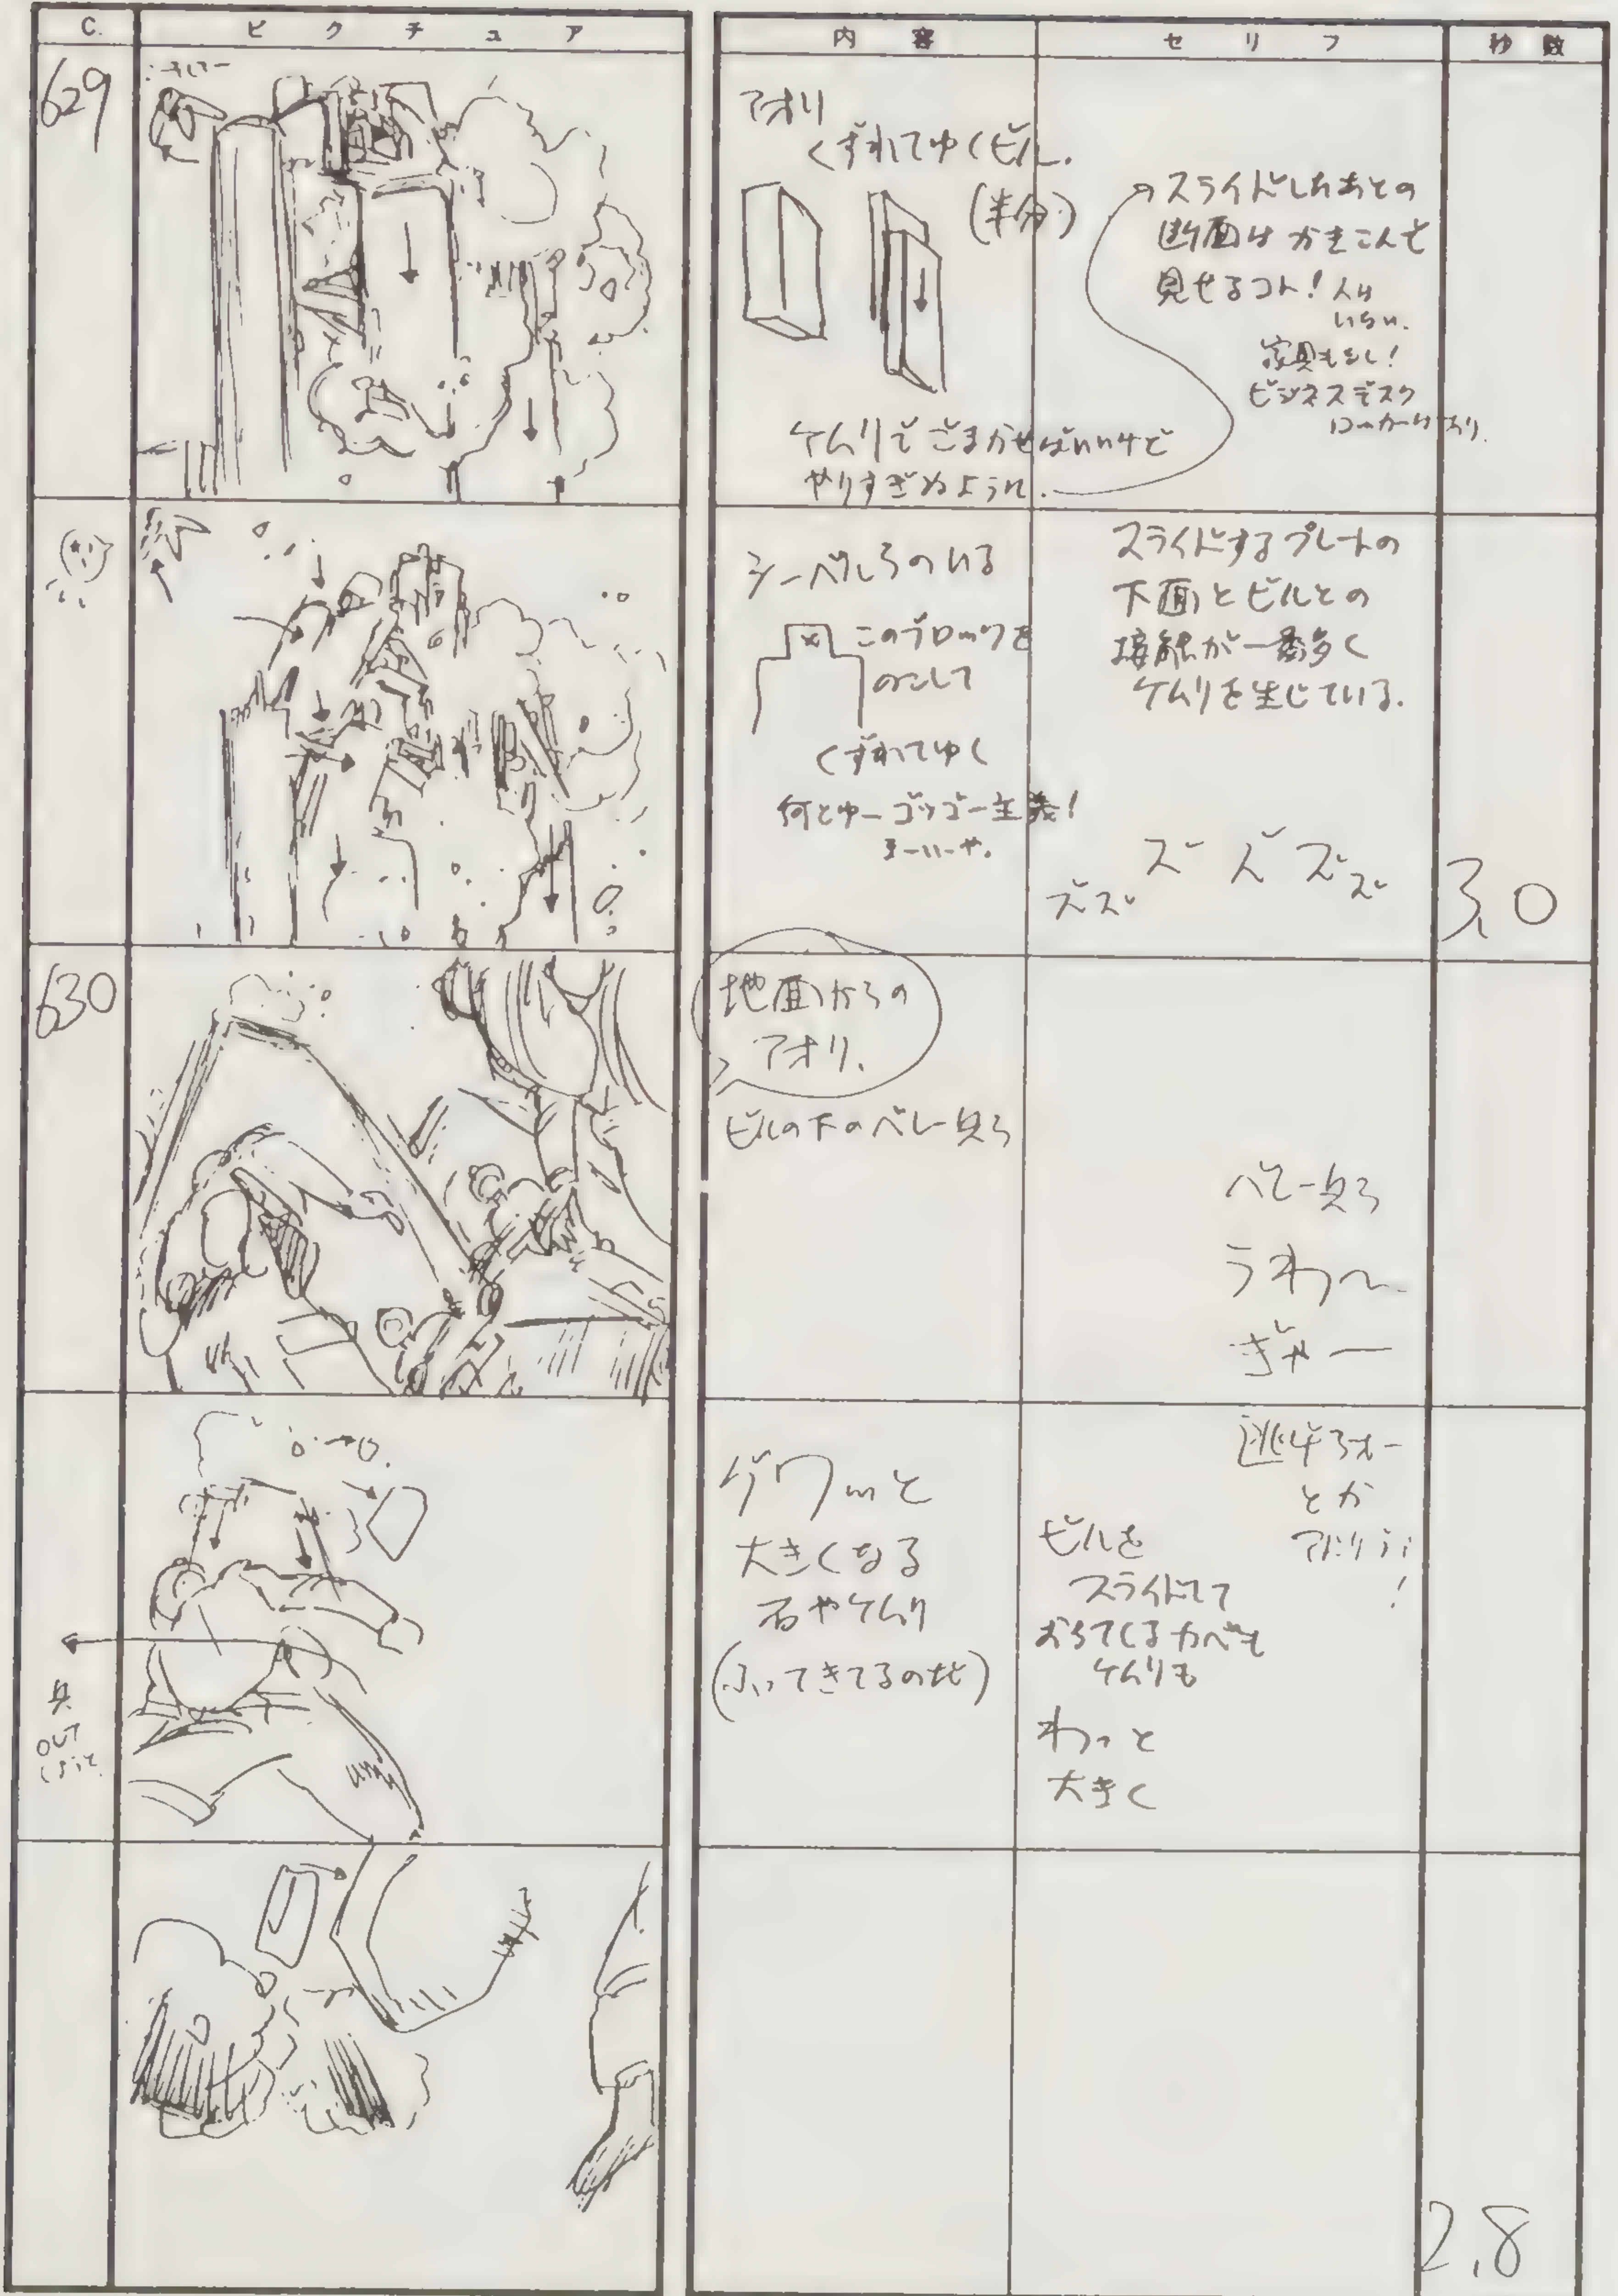 C.
ピクチュア
内容
セリフ
秒数
629
アオリ
くずれてゆくビル.
(半分)
ケムリでごまかせばいいけど
やりすぎぬように.
スライドしたあとの
断面は かきこんで
見せるコト! 人は
いらい.
家具もなし!
ビジネスデスク
ロッカーはあり.
シーベルらのいる
このブロックを
のこして
くずれてゆく
何とゆーゴツゴー主義!
まーいーや.
スライドするプレートの
下面とビルとの
接触が一番多く
ケムリを生じている.
ズズズズズズ
3.0
630
地面からの
アオリ.
ビルの下のベレー兵ら
ベレー兵ら
うわ〜
ぎゃー
兵
OUT
グワッと
大きくなる
石やケムリ
(ふってきてるのだ)
逃げろォー
とか
アドリブ
!
ビルを
スライドして
おちてくるカベも
ケムリも
わっと
大きく
2.8